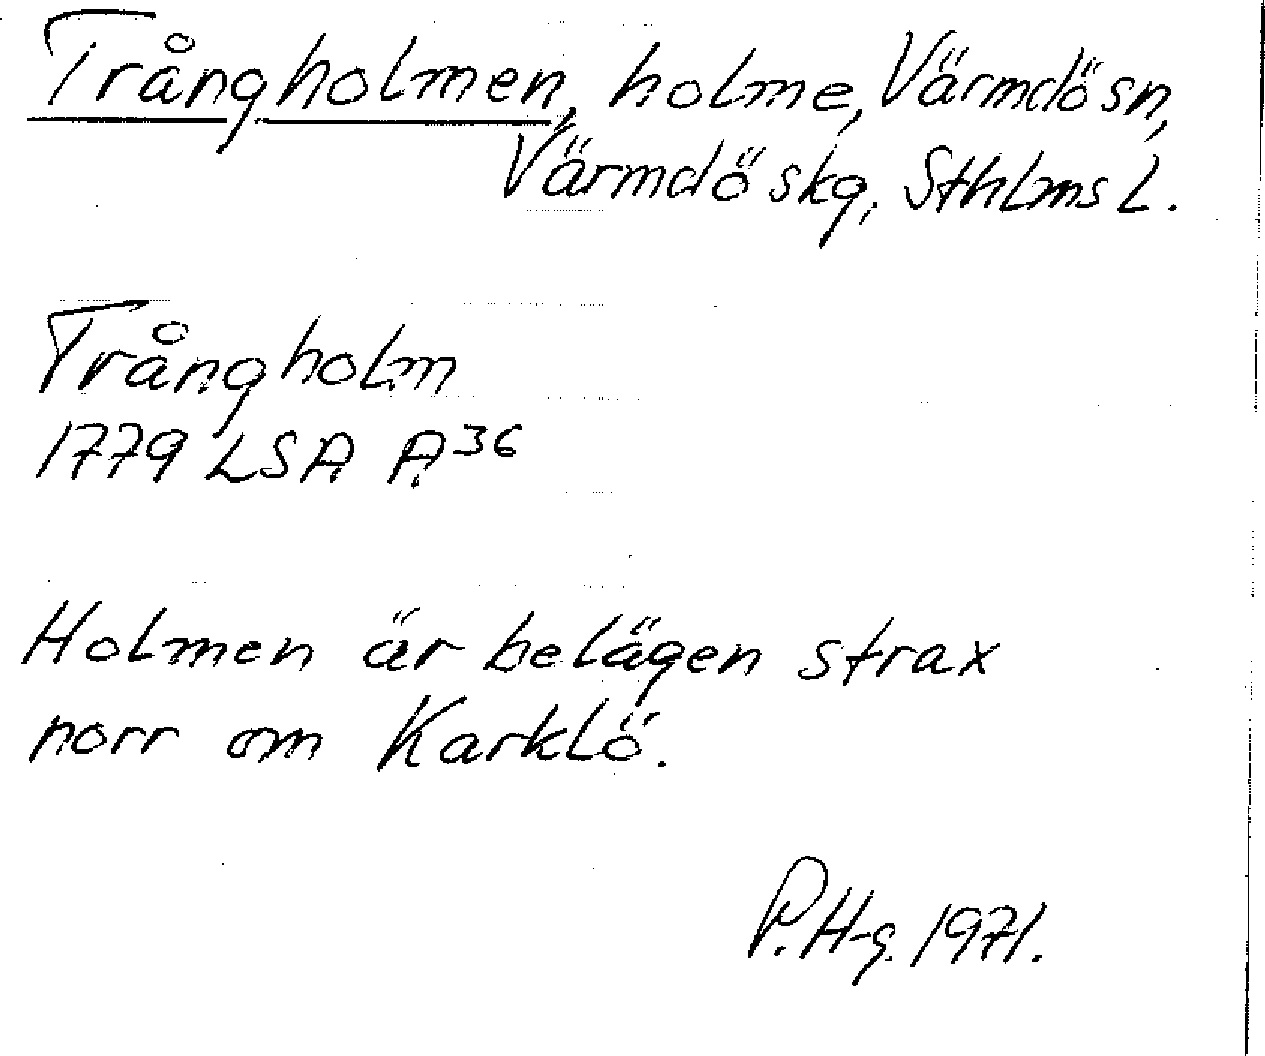 Trångholmen, holme, Värmdö sn,
Värmdö skg, Sthlms L.
Trångholm
1779 LSA A36
Holmen är belägen strax
norr om Karklö.
P. H-g. 1971.